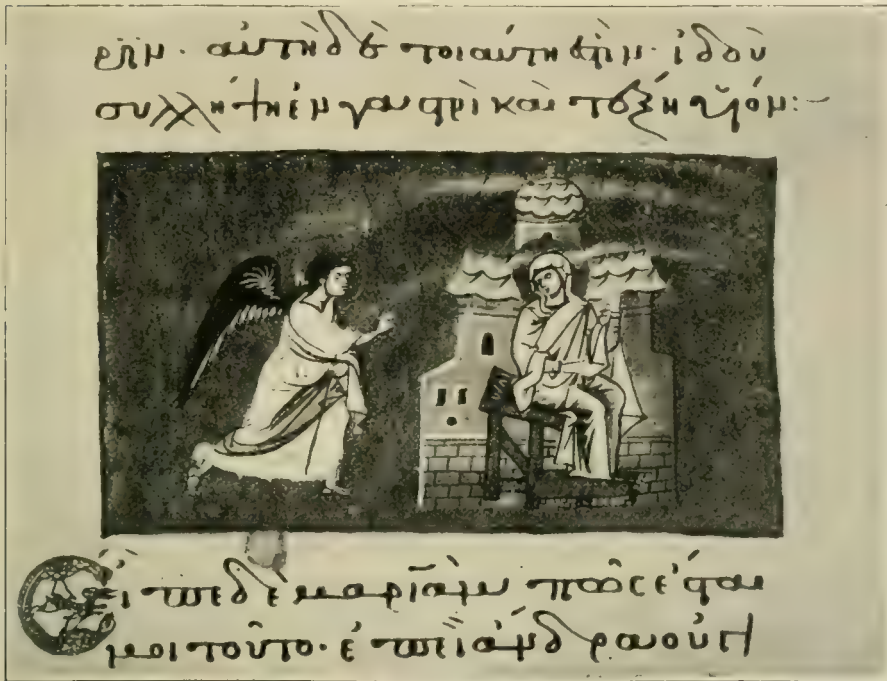 αὕτη δὲ τοιαύτη ἐστὶν· ἰδοὺ
συλλήψη ἐν γαστρὶ καὶ τέξη υἱόν:-
Εἶπε δὲ μαριὰμ πῶς ἔσται
μοι τοῦτο· ἐπεὶ ἄνδρα οὐ γι